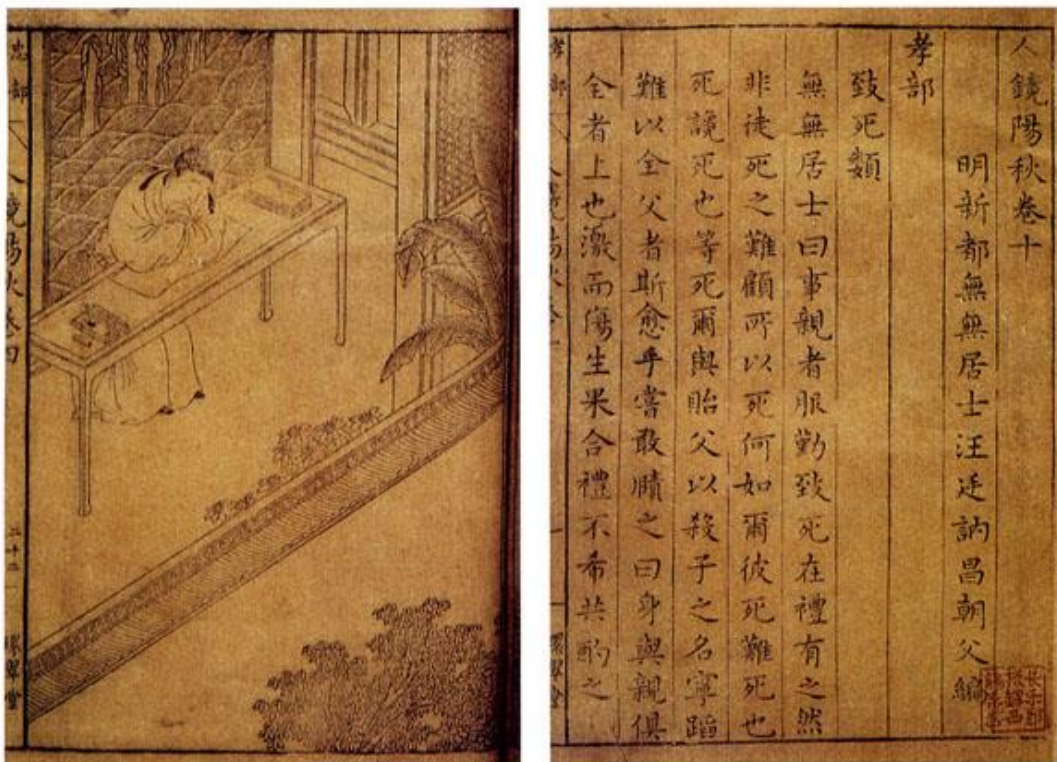 人鏡陽秋卷十
明新都無無居士汪廷訥昌朝父編
孝部
致死類
無無居士曰事親者服勤致死在禮有之然
非徒死之難顧所以死何如爾彼死難死也
死讒死也等死爾與貽父以殺子之名寧蹈
難以全父者斯愈乎嘗敢賾之曰身與親俱
全者上也激而傷生果合禮不希共酌之
孝部
忠部 人鏡陽秋卷四 二十二 環翠堂